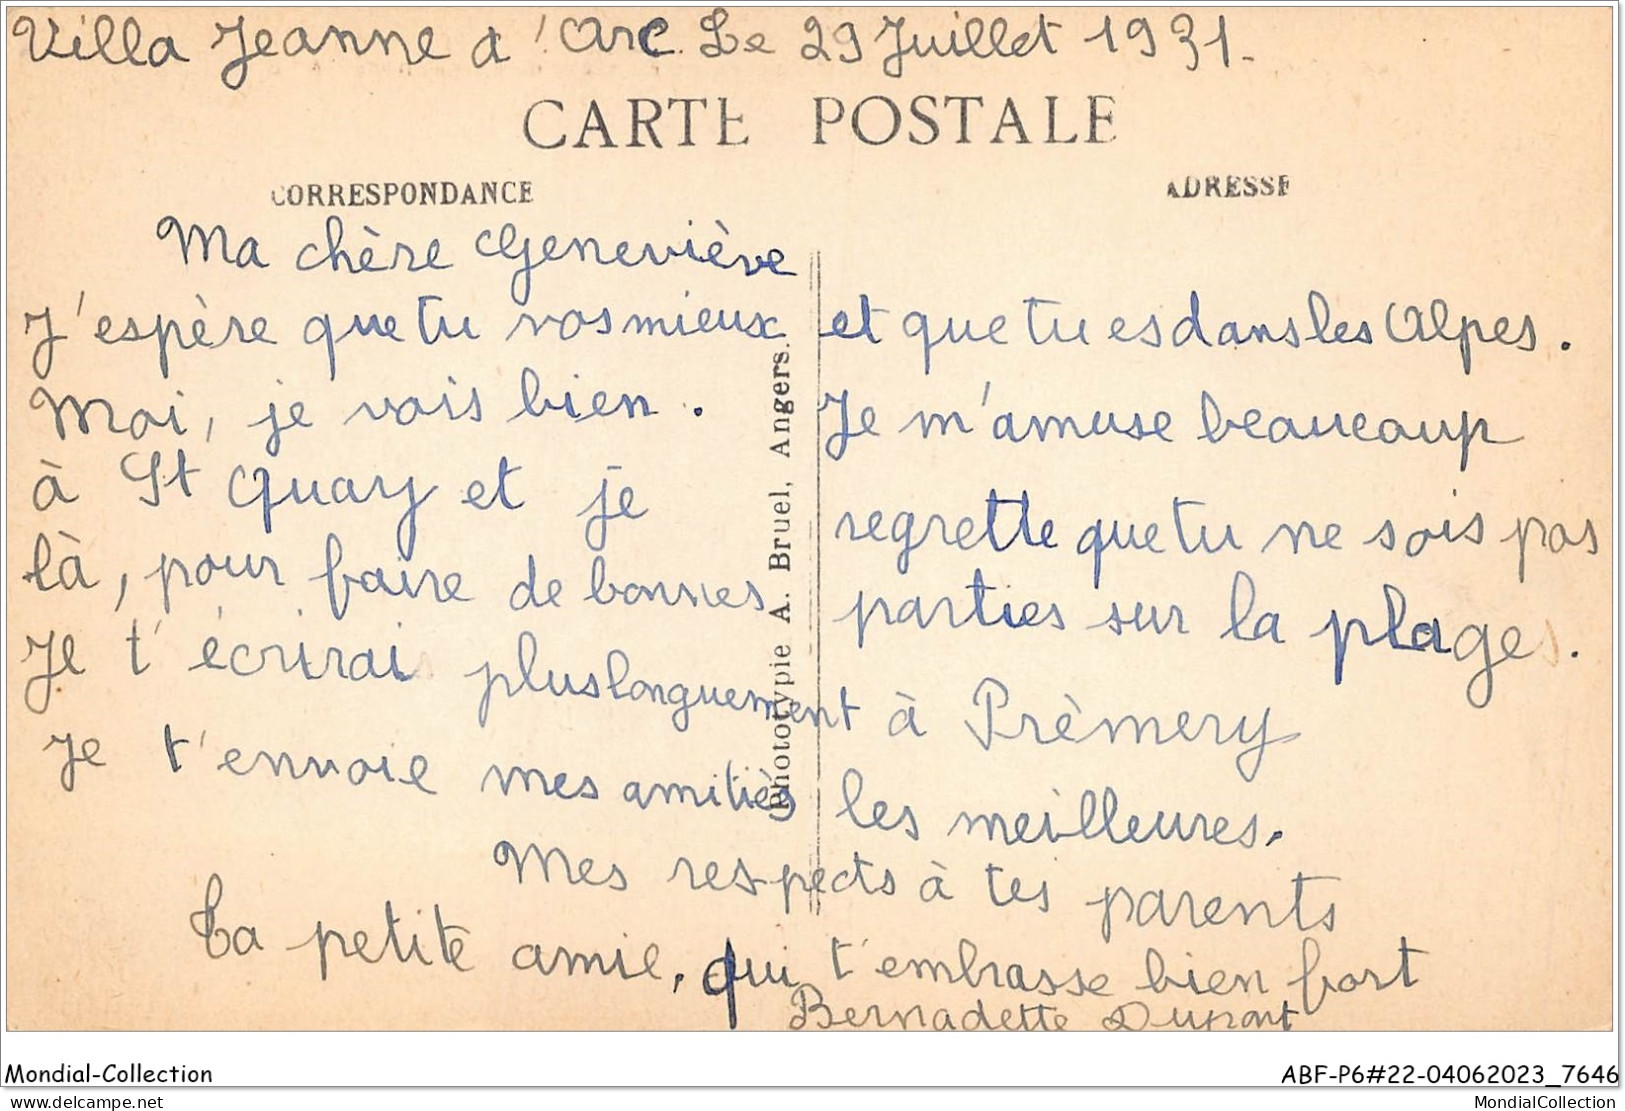 Villa Jeanne d'Arc. Le 29 Juillet 1931.
CARTE POSTALE
CORRESPONDANCE
ADRESSE
Ma chère Geneviève
J'espère que tu vas mieux et que tu es dans les Alpes.
Moi, je vais bien. Je m'amuse beaucoup
à St Quay et je regrette que tu ne sois pas
là, pour faire de bonnes parties sur la plage.
Je t'écrirai plus longuement à Prèmery
Je t'envoie mes amitiés les meilleures.
Mes respects à tes parents
Ta petite amie, qui t'embrasse bien fort
Bernadette Dupont
Phototypie A. Bruel, Angers.
Mondial-Collection
ABF-P6#22-04062023_7646
www.delcampe.net
MondialCollection